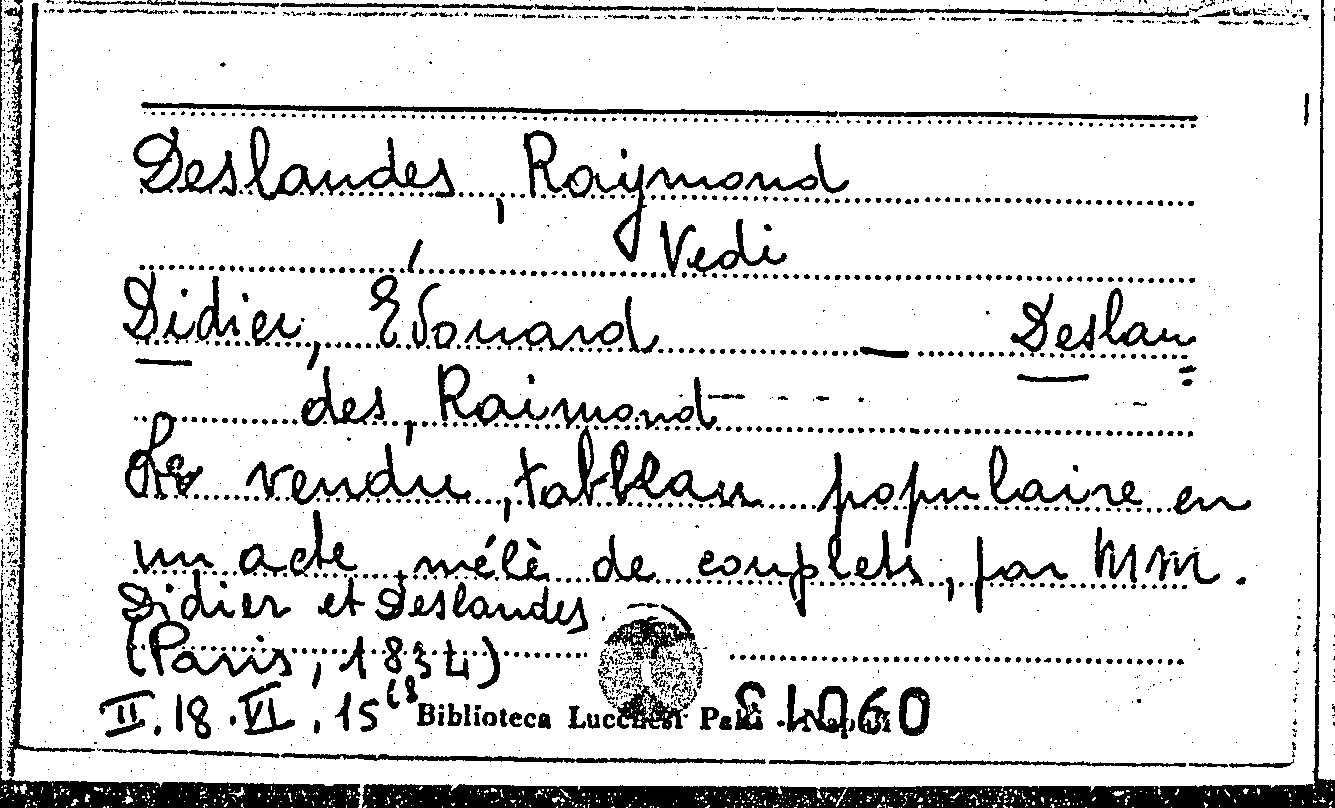 Deslandes, Raymond
Vedi
Didier, Edouard — Deslan=
des, Raimond
Le vendu, tableau populaire en
un acte, mélè de couplets, par MM.
Didier et Deslandes.
(Paris, 1834)
II.18.VI.15(8
Biblioteca Lucchesi Palli - Napoli